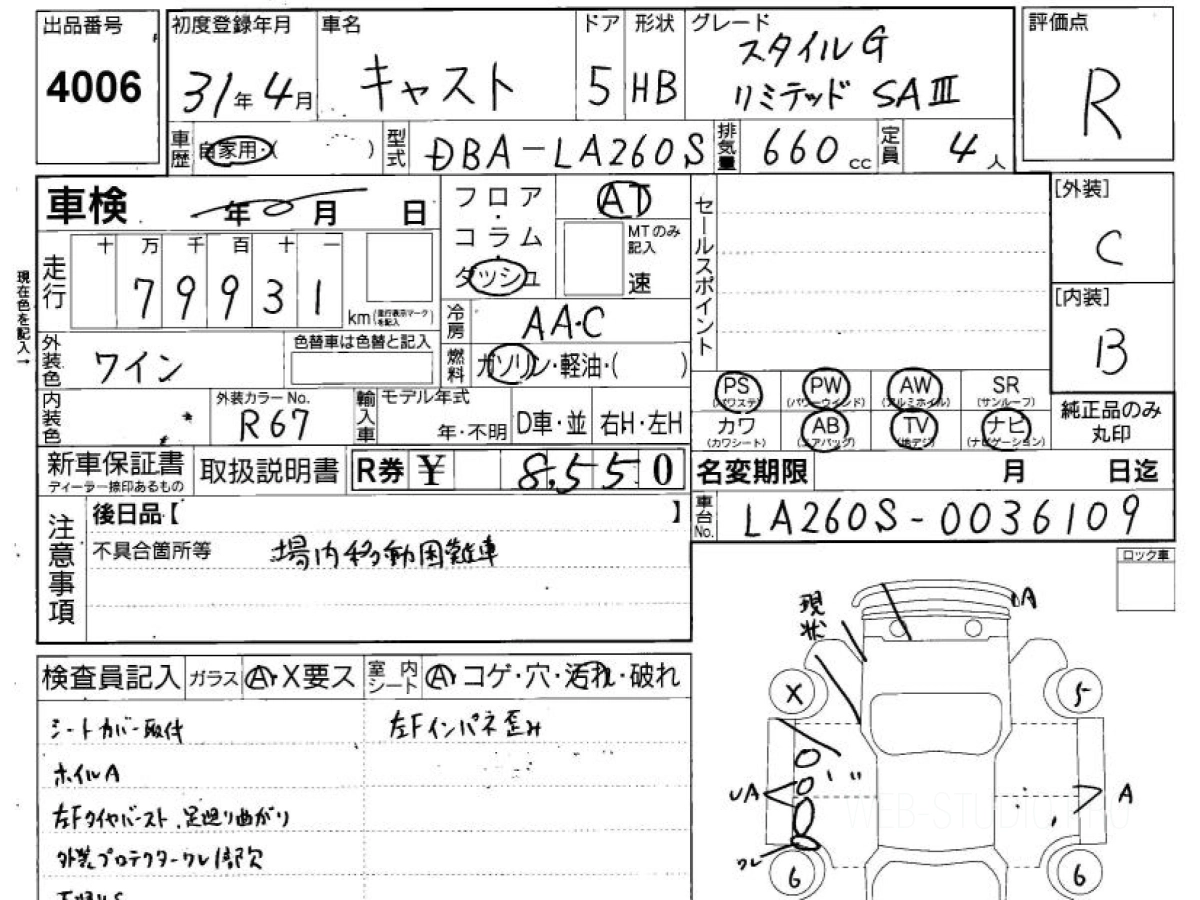 出品番号
4006
初度登録年月
31年4月
車名
キャスト
ドア
5
形状
HB
グレード
スタイルG
リミテッド SAⅢ
評価点
R
車歴
自家用・( )
型式
DBA-LA260S
排気量
660cc
定員
4人
車検
年 月 日
フロア・コラム・ダッシュ
AT
MTのみ記入
速
セールスポイント
[外装]
C
[内装]
B
現在色を記入→
走行
十 万 千 百 十 一
79931
km(走行表示マークを記入)
冷房
AAC
外装色
ワイン
色替車は色替と記入
燃料
ガソリン・軽油・( )
PS
(パワステ)
PW
(パワーウインド)
AW
(アルミホイル)
SR
(サンルーフ)
カワ
(カワシート)
AB
(エアバッグ)
TV
(地デジ)
ナビ
(ナビゲーション)
純正品のみ丸印
内装色
外装カラーNo.
R67
輸入車
モデル年式
年・不明
D車・並
右H・左H
新車保証書
ディーラー捺印あるもの
取扱説明書
R券
¥
8,550
名変期限
月 日迄
車台No.
LA260S-0036109
注意事項
後日品【 】
不具合箇所等
場内移動困難車
ロック車
現状
A
X
5
UA
A
クレ
6
6
検査員記入
ガラス
A・X要ス
室内シート
A・コゲ・穴・汚れ・破れ
シートカバー取付
左Fインパネ歪み
ホイルA
左Fタイヤバースト、足廻り曲がり
外装プロテクタークレ1部欠
WEB-STUDIO.PRO